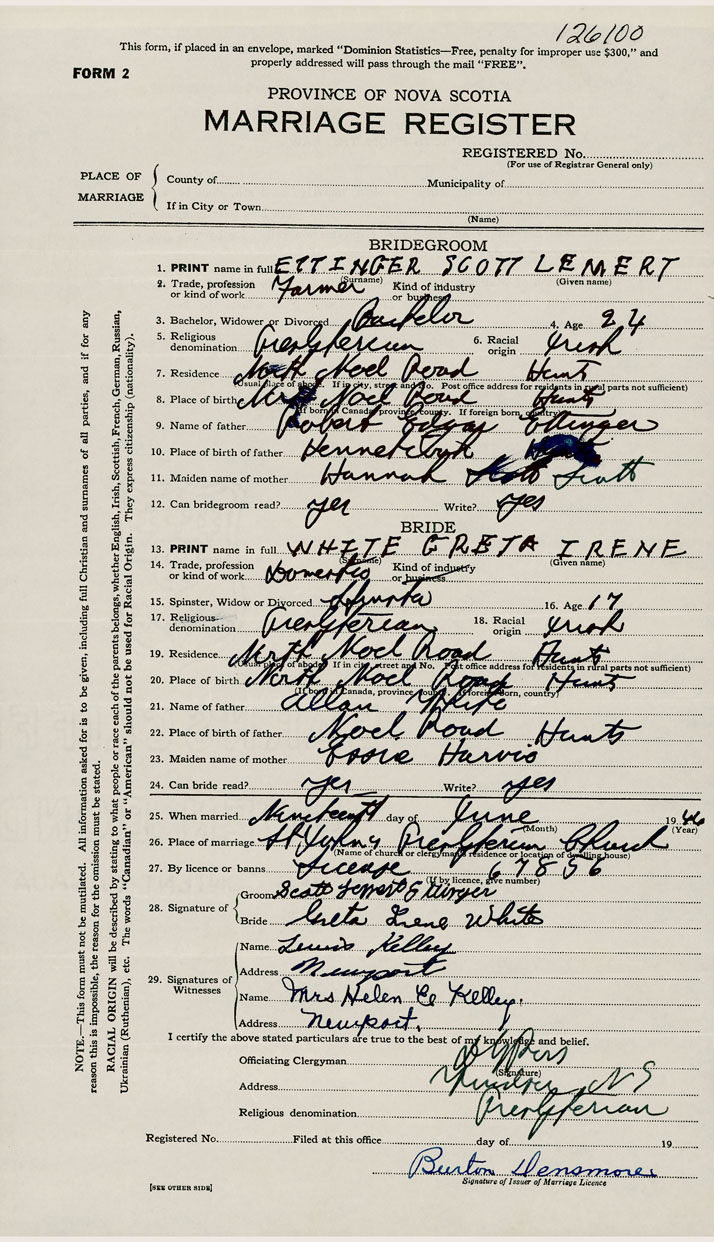 126100
This form, if placed in an envelope, marked "Dominion Statistics—Free, penalty for improper use $300," and
properly addressed will pass through the mail "FREE".
FORM 2
PROVINCE OF NOVA SCOTIA
MARRIAGE REGISTER
REGISTERED No.
(For use of Registrar General only)
PLACE OF MARRIAGE
County of Municipality of
If in City or Town
(Name)
BRIDEGROOM
1. PRINT name in full ETTINGER SCOTT LEMERT
(Surname) (Given name)
2. Trade, profession or kind of work Farmer Kind of industry or business
3. Bachelor, Widower or Divorced Bachelor 4. Age 24
5. Religious denomination Presbyterian 6. Racial origin Irish
7. Residence North Noel Road Hunts
(Usual place of abode. If in city, street and No. Post office address for residents in rural parts not sufficient)
8. Place of birth Noel Road Hunts
(If born in Canada, province, county. If foreign born, country)
9. Name of father Robert Edgar Ettinger
10. Place of birth of father Kennetcook
11. Maiden name of mother Hannah Scott
12. Can bridegroom read? yes Write? yes
BRIDE
13. PRINT name in full WHITE GRETA IRENE
(Surname) (Given name)
14. Trade, profession or kind of work Domestic Kind of industry or business
15. Spinster, Widow or Divorced Spinster 16. Age 17
17. Religious denomination Presbyterian 18. Racial origin Irish
19. Residence North Noel Road Hunts
(Usual place of abode. If in city, street and No. Post office address for residents in rural parts not sufficient)
20. Place of birth North Noel Road Hunts
(If born in Canada, province, county. If foreign born, country)
21. Name of father Allan White
22. Place of birth of father Noel Road Hunts
23. Maiden name of mother Essie Harvie
24. Can bride read? yes Write? yes
25. When married day of June 1946
(Month) (Year)
26. Place of marriage St John's Presbyterian Church
(Name of church or clergyman's residence or location of dwelling house)
27. By licence or banns License 67856
(If by licence, give number)
28. Signature of
Groom Scott Ettinger
Bride Greta Irene White
29. Signatures of Witnesses
Name Lewis Kelley
Address Newport
Name Mrs Helen E Kelley.
Address Newport.
I certify the above stated particulars are true to the best of my knowledge and belief.
Officiating Clergyman
(Signature)
Address Windsor NS
Religious denomination Presbyterian
Registered No. Filed at this office day of 19
Burton Densmore
Signature of Issuer of Marriage Licence
[SEE OTHER SIDE]
NOTE.—This form must not be mutilated. All information asked for is to be given, including full Christian and surnames of all parties, and if for any
reason this is impossible, the reason for the omission must be stated.
RACIAL ORIGIN will be described by stating to what people or race each of the parents belongs, whether English, Irish, Scottish, French, German, Russian,
Ukrainian (Ruthenian), etc. The words "Canadian" or "American" should not be used for Racial Origin. They express citizenship (nationality).